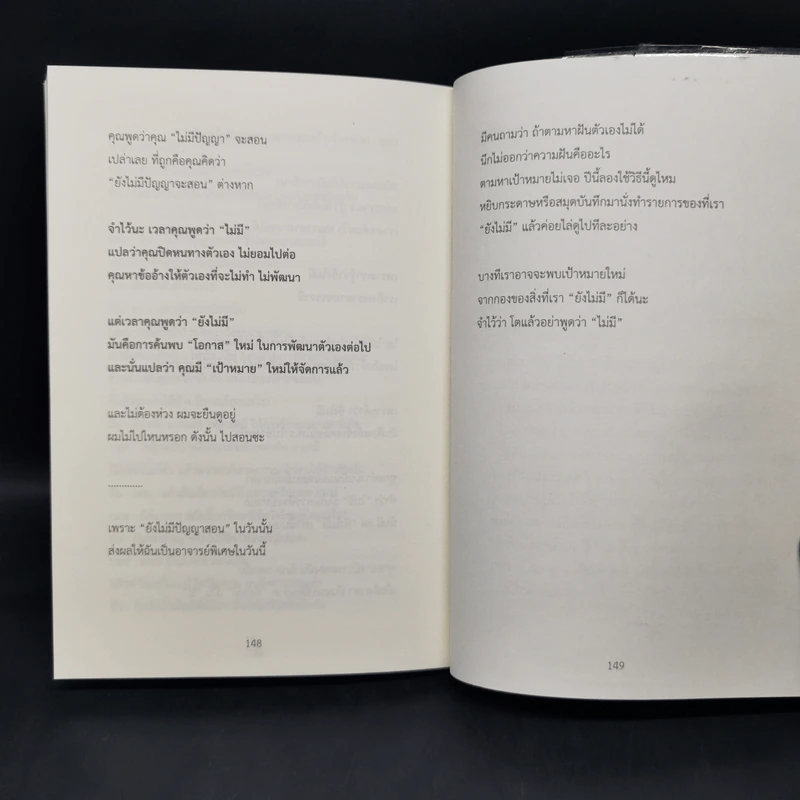 คุณพูดว่าคุณ “ไม่มีปัญญา” จะสอน
เปล่าเลย ที่ถูกคือคุณคิดว่า
“ยังไม่มีปัญญาจะสอน” ต่างหาก
จำไว้นะ เวลาคุณพูดว่า “ไม่มี”
แปลว่าคุณปิดหนทางตัวเอง ไม่ยอมไปต่อ
คุณหาข้ออ้างให้ตัวเองที่จะไม่ทำ ไม่พัฒนา
แต่เวลาคุณพูดว่า “ยังไม่มี”
มันคือการค้นพบ “โอกาส” ใหม่ ในการพัฒนาตัวเองต่อไป
และนั่นแปลว่า คุณมี “เป้าหมาย” ใหม่ให้จัดการแล้ว
และไม่ต้องห่วง ผมจะยืนดูอยู่
ผมไม่ไปไหนหรอก ดังนั้น ไปสอนซะ
.............
เพราะ “ยังไม่มีปัญญาสอน” ในวันนั้น
ส่งผลให้ฉันเป็นอาจารย์พิเศษในวันนี้
148
มีคนถามว่า ถ้าตามหาฝันตัวเองไม่ได้
นึกไม่ออกว่าความฝันคืออะไร
ตามหาเป้าหมายไม่เจอ ปีนี้ลองใช้วิธีนี้ดูไหม
หยิบกระดาษหรือสมุดบันทึกมานั่งทำรายการของที่เรา
“ยังไม่มี” แล้วค่อยไล่ดูไปทีละอย่าง
บางทีเราอาจจะพบเป้าหมายใหม่
จากกองของสิ่งที่เรา “ยังไม่มี” ก็ได้นะ
จำไว้ว่า โตแล้วอย่าพูดว่า “ไม่มี”
149